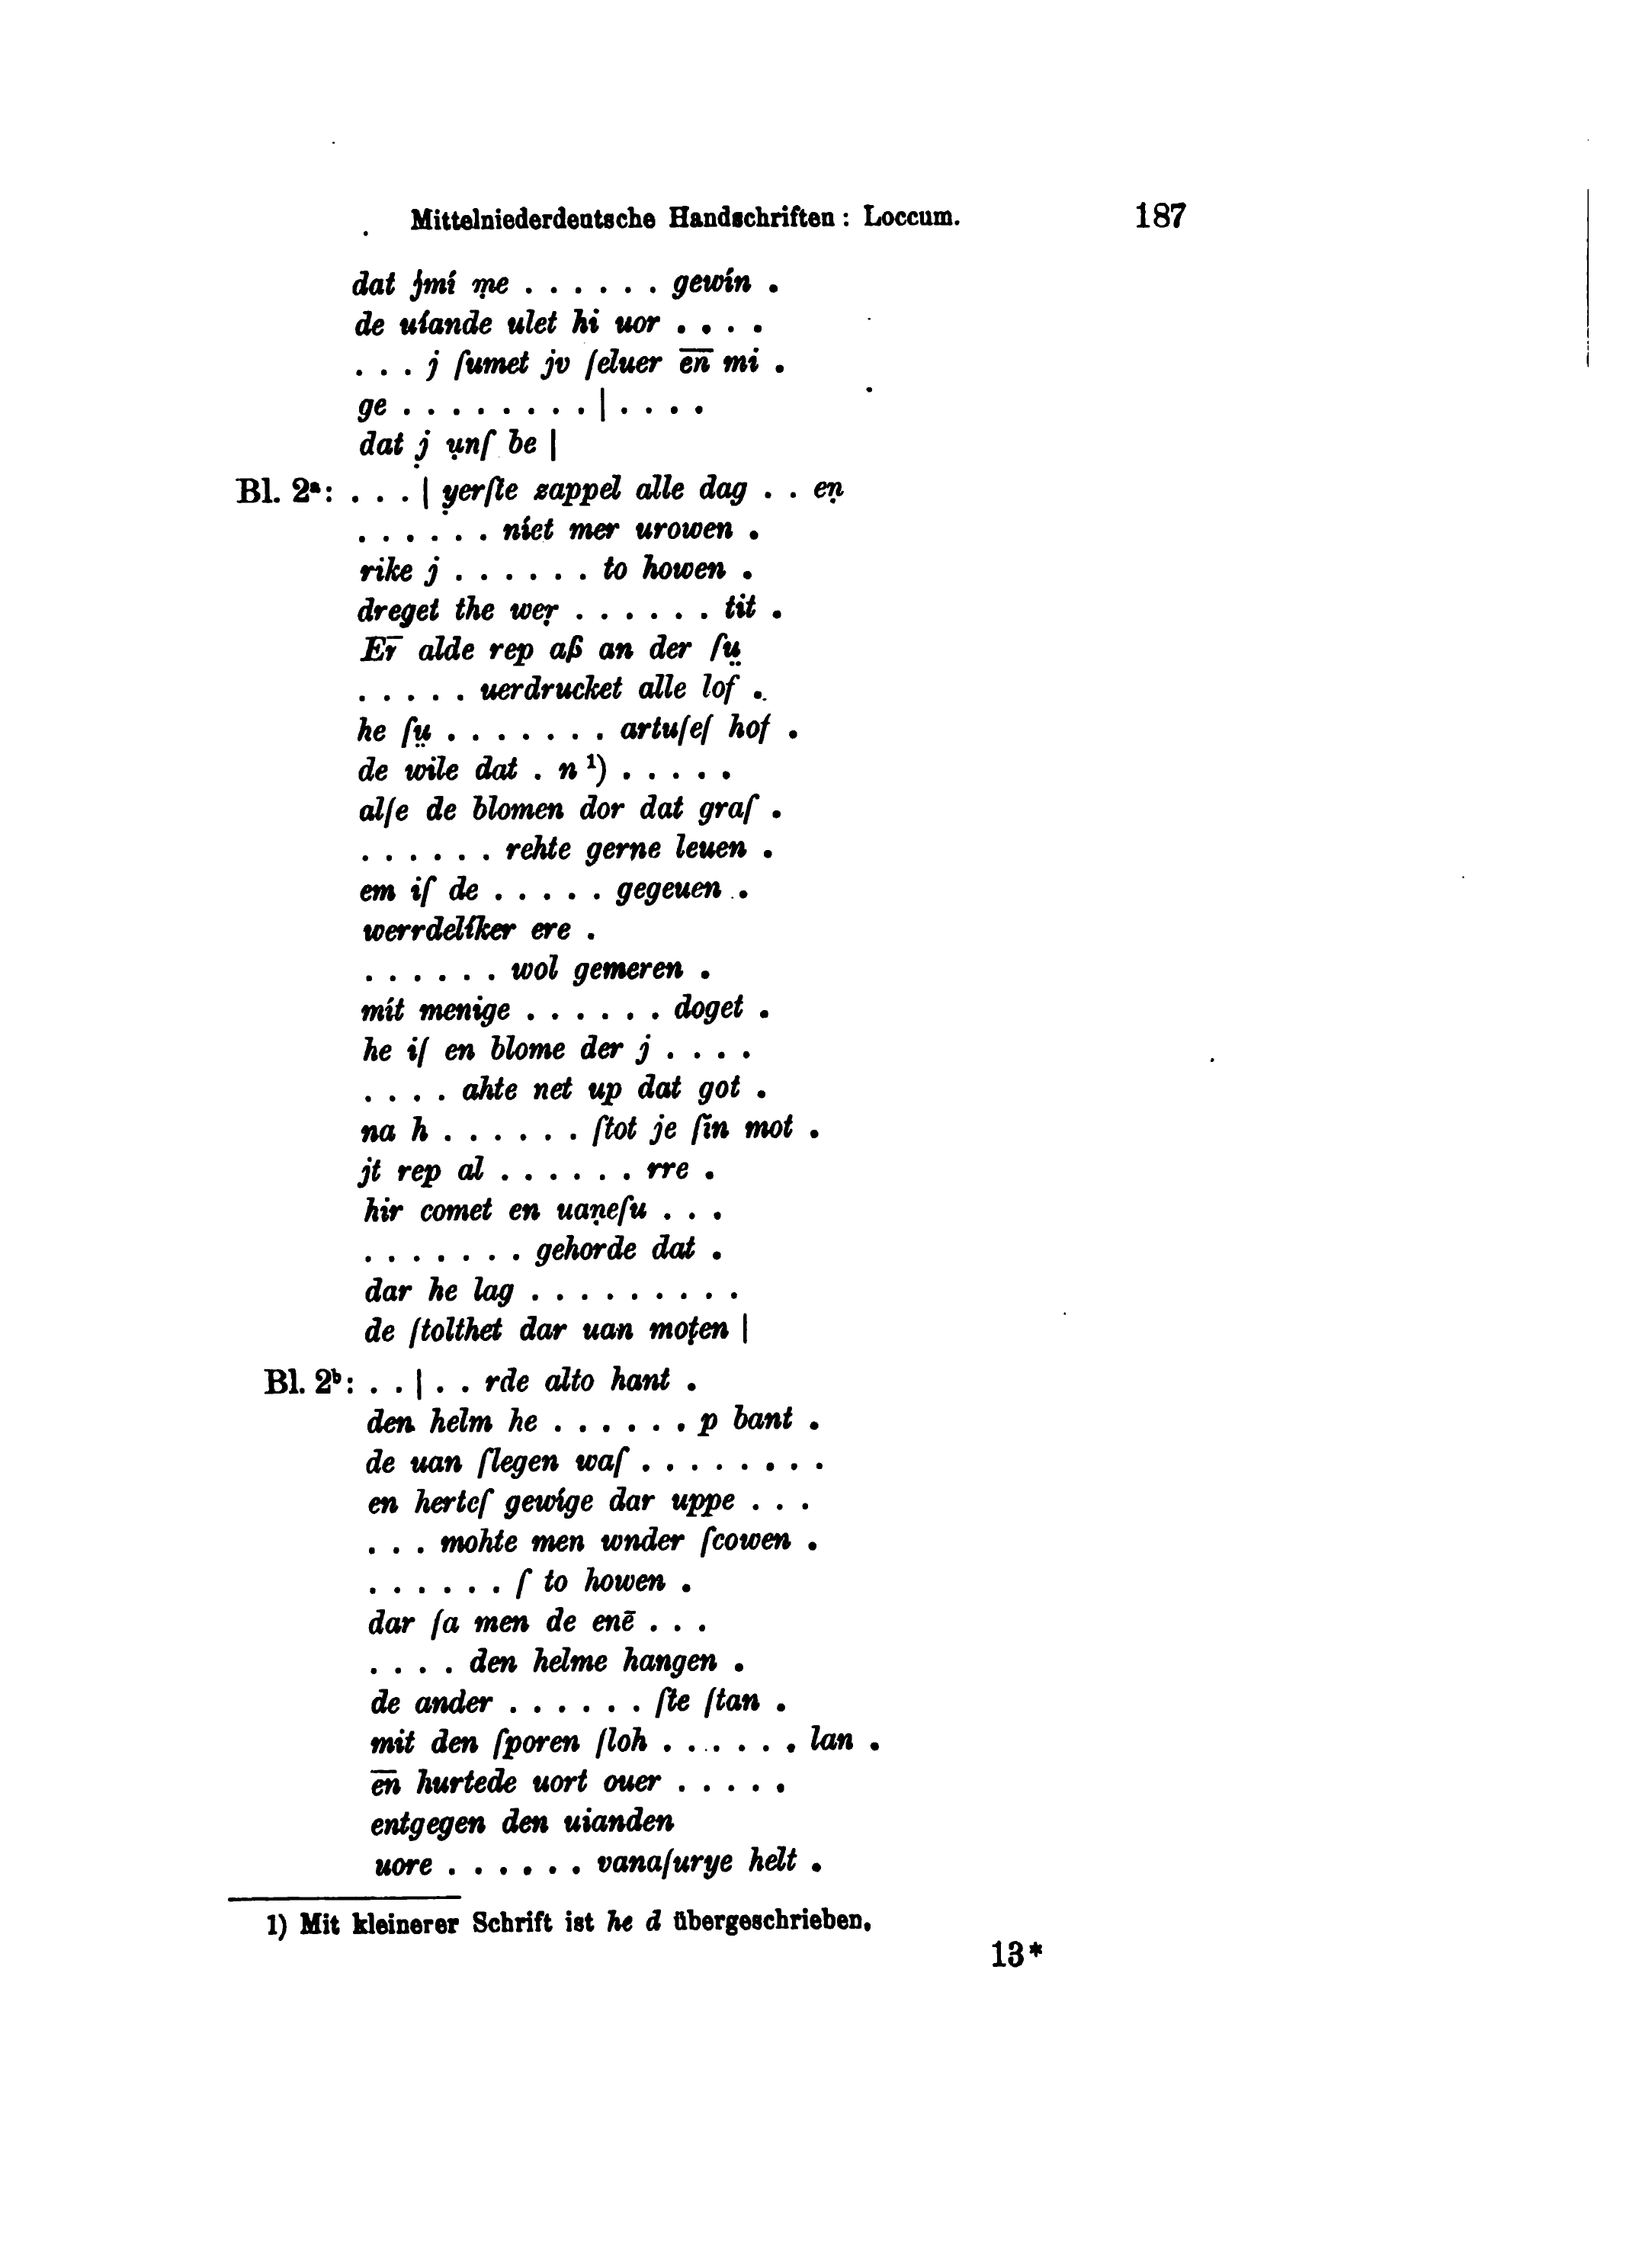 Mittelniederdeutsche Handschriften: Loccum. 187
dat j́mí ṃe . . . . . . gewín .
de uíande ulet hi uor . . . .
. . . j ſumet jv ſeluer e̅n̅ mi .
ge . . . . . . . . | . . . .
dat j̣ ụnſ be |
Bl. 2ᵃ: . . . | ỵerſte zappel alle dag . . eṇ
. . . . . . níet mer urowen .
rike j . . . . . . to howen .
dreget the weṛ . . . . . . tit .
Er̅ alde rep aß an der ſṳ
. . . . . uerdrucket alle lof .
he ſṳ . . . . . . . artuſeſ hof .
de wile dat . n ¹) . . . . .
alſe de blomen dor dat graſ .
. . . . . . rehte gerne leuen .
em iſ de . . . . . gegeuen .
werrdelíker ere .
. . . . . . wol gemeren .
mít menige . . . . . . doget .
he iſ en blome der j . . . .
. . . . ahte net up dat got .
na h . . . . . . ſtot je ſin mot .
jt rep al . . . . . . rre .
hir comet en uaṇeſu . . .
. . . . . . . gehorde dat .
dar he lag . . . . . . . . .
de ſtolthet dar uan moṭen |
Bl. 2ᵇ: . . | . . rde alto hant .
den helm he . . . . . . p bant .
de uan ſlegen waſ . . . . . . . .
en herteſ gewíge dar uppe . . .
. . . mohte men wnder ſcowen .
. . . . . . ſ to howen .
dar ſa men de enē . . .
. . . . den helme hangen .
de ander . . . . . . ſte ſtan .
mit den ſporen ſloh . . . . . . lan .
e̅n̅ hurtede uort ouer . . . . .
entgegen den uianden
uore . . . . . . vanaſurye helt .
1) Mit kleinerer Schrift ist he d übergeschrieben.
13*